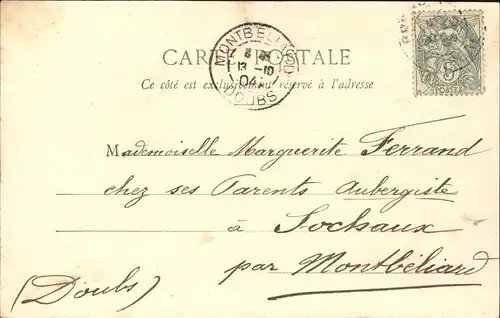 CARTE POSTALE
Ce côté est exclusivement réservé à l'adresse
MONTBELIARD
13 -10
04
DOUBS
5
POSTES
Mademoiselle Marguerite Ferrand
chez ses Parents Aubergiste
à Sochaux
par Montbéliard
(Doubs)